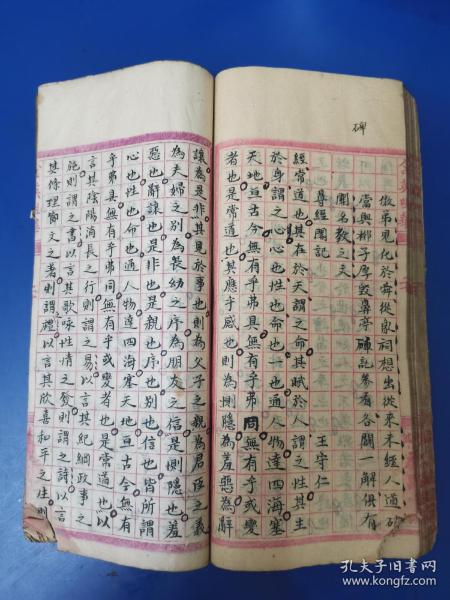 碑
傲弟見化於舜從象祠想出從來未經人道破
當與柳子厚毀鼻亭碑記參看各闢一解俱有
名教之
尊經閣記 王守仁
經常道也其在於天謂之命其賦於人謂之性其主
於身謂之心心也性也命也一也通人物達四海塞
天地亘古今無有乎弗具無有乎弗同無有乎或變
者也是常道也其應乎感也則為惻隱為羞惡為辭
讓為是非其見於事也則為父子之親為君臣之義
為夫婦之別為長幼之序為朋友之信是惻隱也羞
惡也辭讓也是非也是親也序也別也信也皆所謂
心也性也命也通人物達四海塞天地亘古今無有
乎弗具無有乎弗同無有乎或變者也是常道也以
言其陰陽消長之行則謂之易以言其紀綱政事之
施則謂之書以言其歌咏性情之發則謂之詩以言
其條理節文之著則謂之禮以言其欣喜和平之生則
孔夫子旧书网
www.kongfz.com